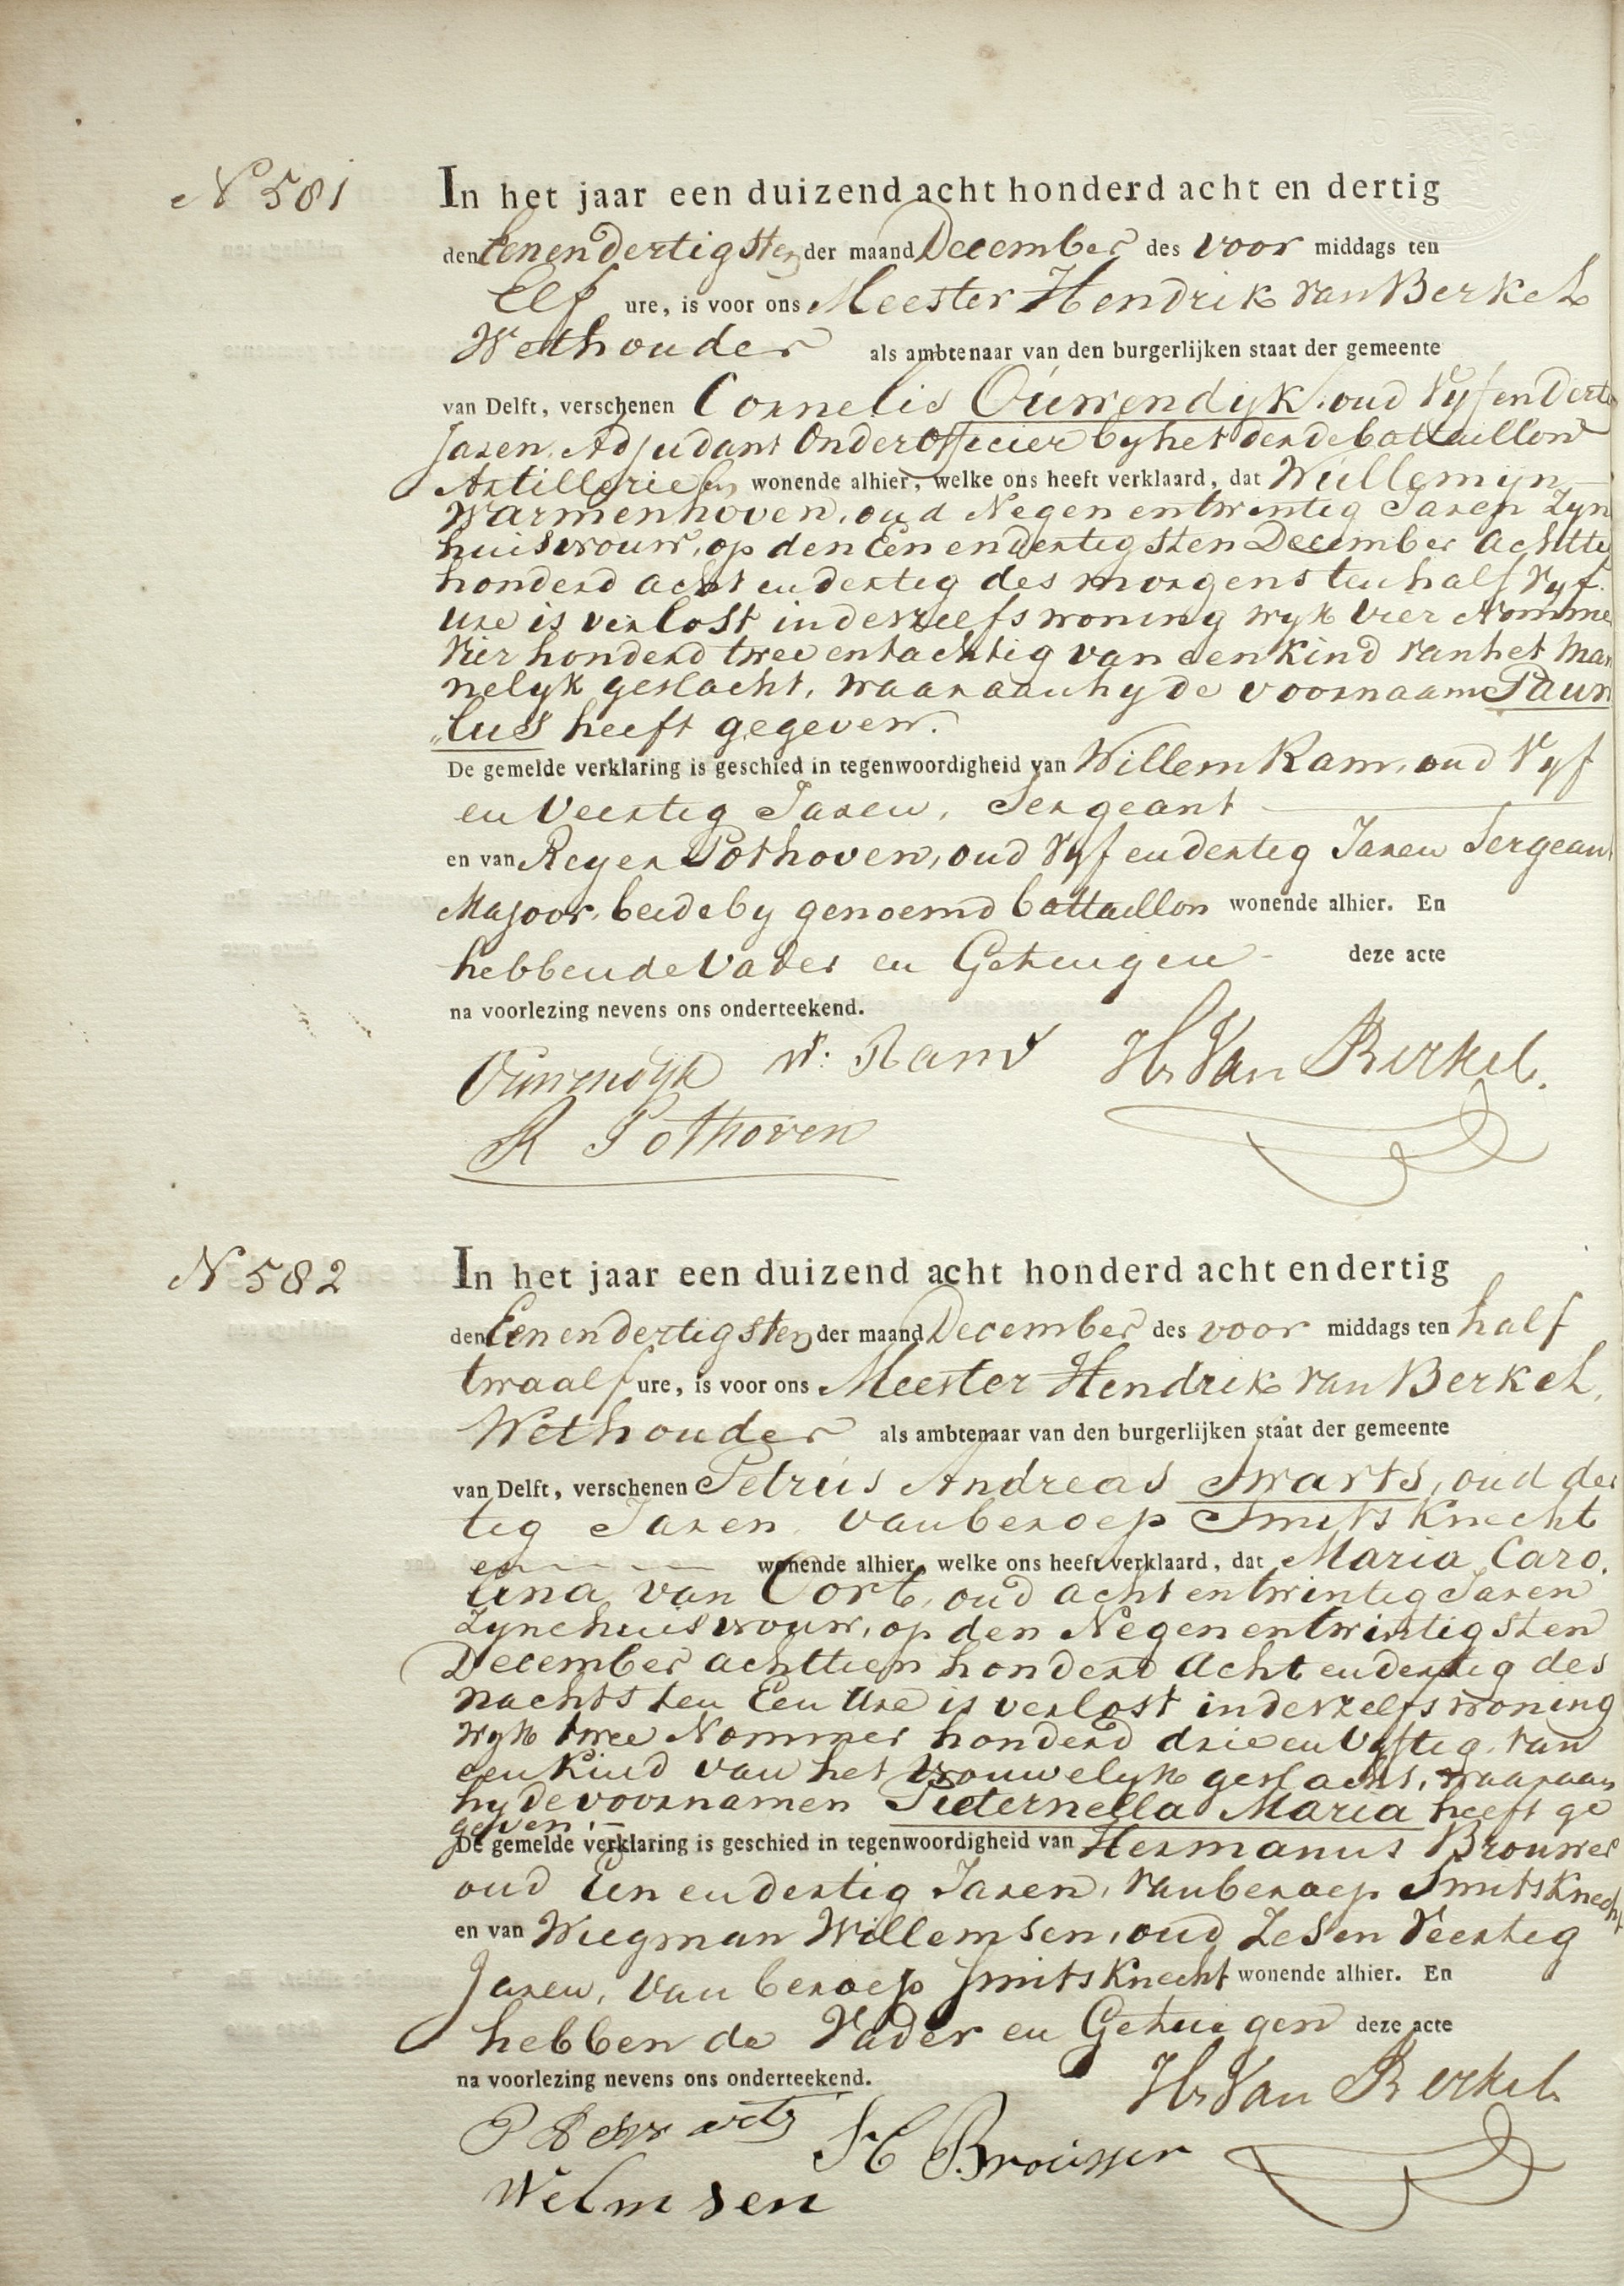 N 581
In het jaar een duizend acht honderd acht en dertig
den Eenendertigsten der maand December des voor middags ten
Elf ure, is voor ons Meester Hendrik van Berkel
Wethouder als ambtenaar van den burgerlijken staat der gemeente
van Delft, verschenen Cornelis Ouwendyk, oud Vyf en Dert
Jaren, Adjudant Onderofficier by het derde bataillon
Artillerie en wonende alhier, welke ons heeft verklaard, dat Willemijn
Warmenhoven, oud Negen entwintig Jaren Zyn
huisvrouw, op den Een en dertigsten December Achttie
honderd acht en dertig des morgens ten half Vyf
ure is verlost in deszelfs woning wyk Vier Nomme
Vier honderd twee en tachtig van een Kind van het Man
nelyk geslacht, waaraan hy de voornaam Pauw
"lus heeft gegeven.
De gemelde verklaring is geschied in tegenwoordigheid van Willem Ram, oud Vyf
en Veertig Jaren, Sergeant
en van Reyer Pothoven, oud Vyf en dertig Jaren Sergeant
Majoor, beide by genoemd battaillon wonende alhier. En
hebben de Vader en Getuigen deze acte
na voorlezing nevens ons onderteekend.
Ouwendyk W: Ram H. Van Berkel.
R Pothoven
N 582
In het jaar een duizend acht honderd acht en dertig
den Eenendertigsten der maand December des voor middags ten half
twaalf ure, is voor ons Meester Hendrik van Berkel,
Wethouder als ambtenaar van den burgerlijken staat der gemeente
van Delft, verschenen Petrus Andreas Swarts, oud der
tig Jaren, van beroep Smits Knecht
en wonende alhier, welke ons heeft verklaard, dat Maria Caro.
lina van Oort, oud acht en twintig Jaren
Zyne huisvrouw, op den Negen entwintigsten
December achttien honderd Acht en dertig des
nachts ten Een Ure is verlost in deszelfs woning
wyk twee Nommer honderd drie en Vyftig, van
een Kind van het Vrouwelyk geslacht, waaraan
hy de voornamen Pieternella Maria heeft ge
geven.
De gemelde verklaring is geschied in tegenwoordigheid van Hermanus Brouwer
oud Een en dertig Jaren, van beroep Smits Knecht
en van Wiegman Willemsen, oud Zes en Veertig
Jaren, van beroep Smits Knecht wonende alhier. En
hebben de Vader en Getuigen deze acte
na voorlezing nevens ons onderteekend.
H. Van Berkel
H Brouwer
Welmsen